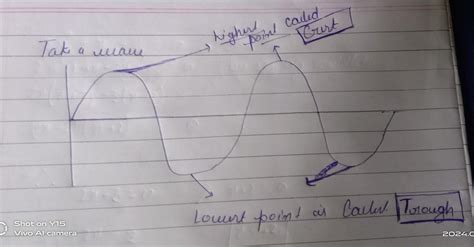 Take a wave
highest
point called
Crest
Lowest point is Called Trough
Shot on Y15
Vivo AI camera
2024.0